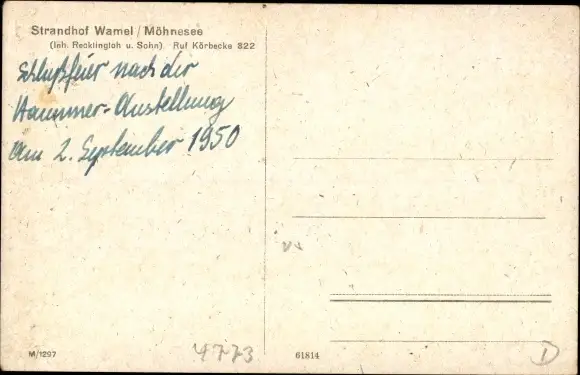 Strandhof Wamel / Möhnesee
(Inh. Recklingloh u. Sohn) Ruf Körbecke 322
Schlußfeier nach der
Hammer-Ausstellung
am 2. September 1950
M/1297
4773
61814
D